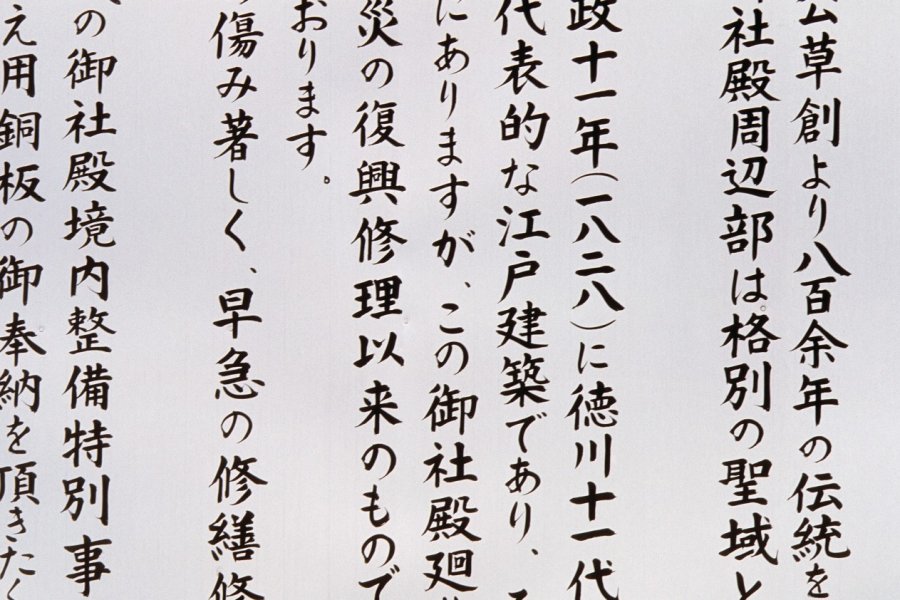 公草創より八百余年の伝統を
社殿周辺部は格別の聖域と
政十一年(一八二八)に徳川十一代
代表的な江戸建築であり、
にありますが、この御社殿廻
災の復興修理以来のもので
おります。
傷み著しく、早急の修繕修
の御社殿境内整備特別事
え用銅板の御奉納を頂きたく